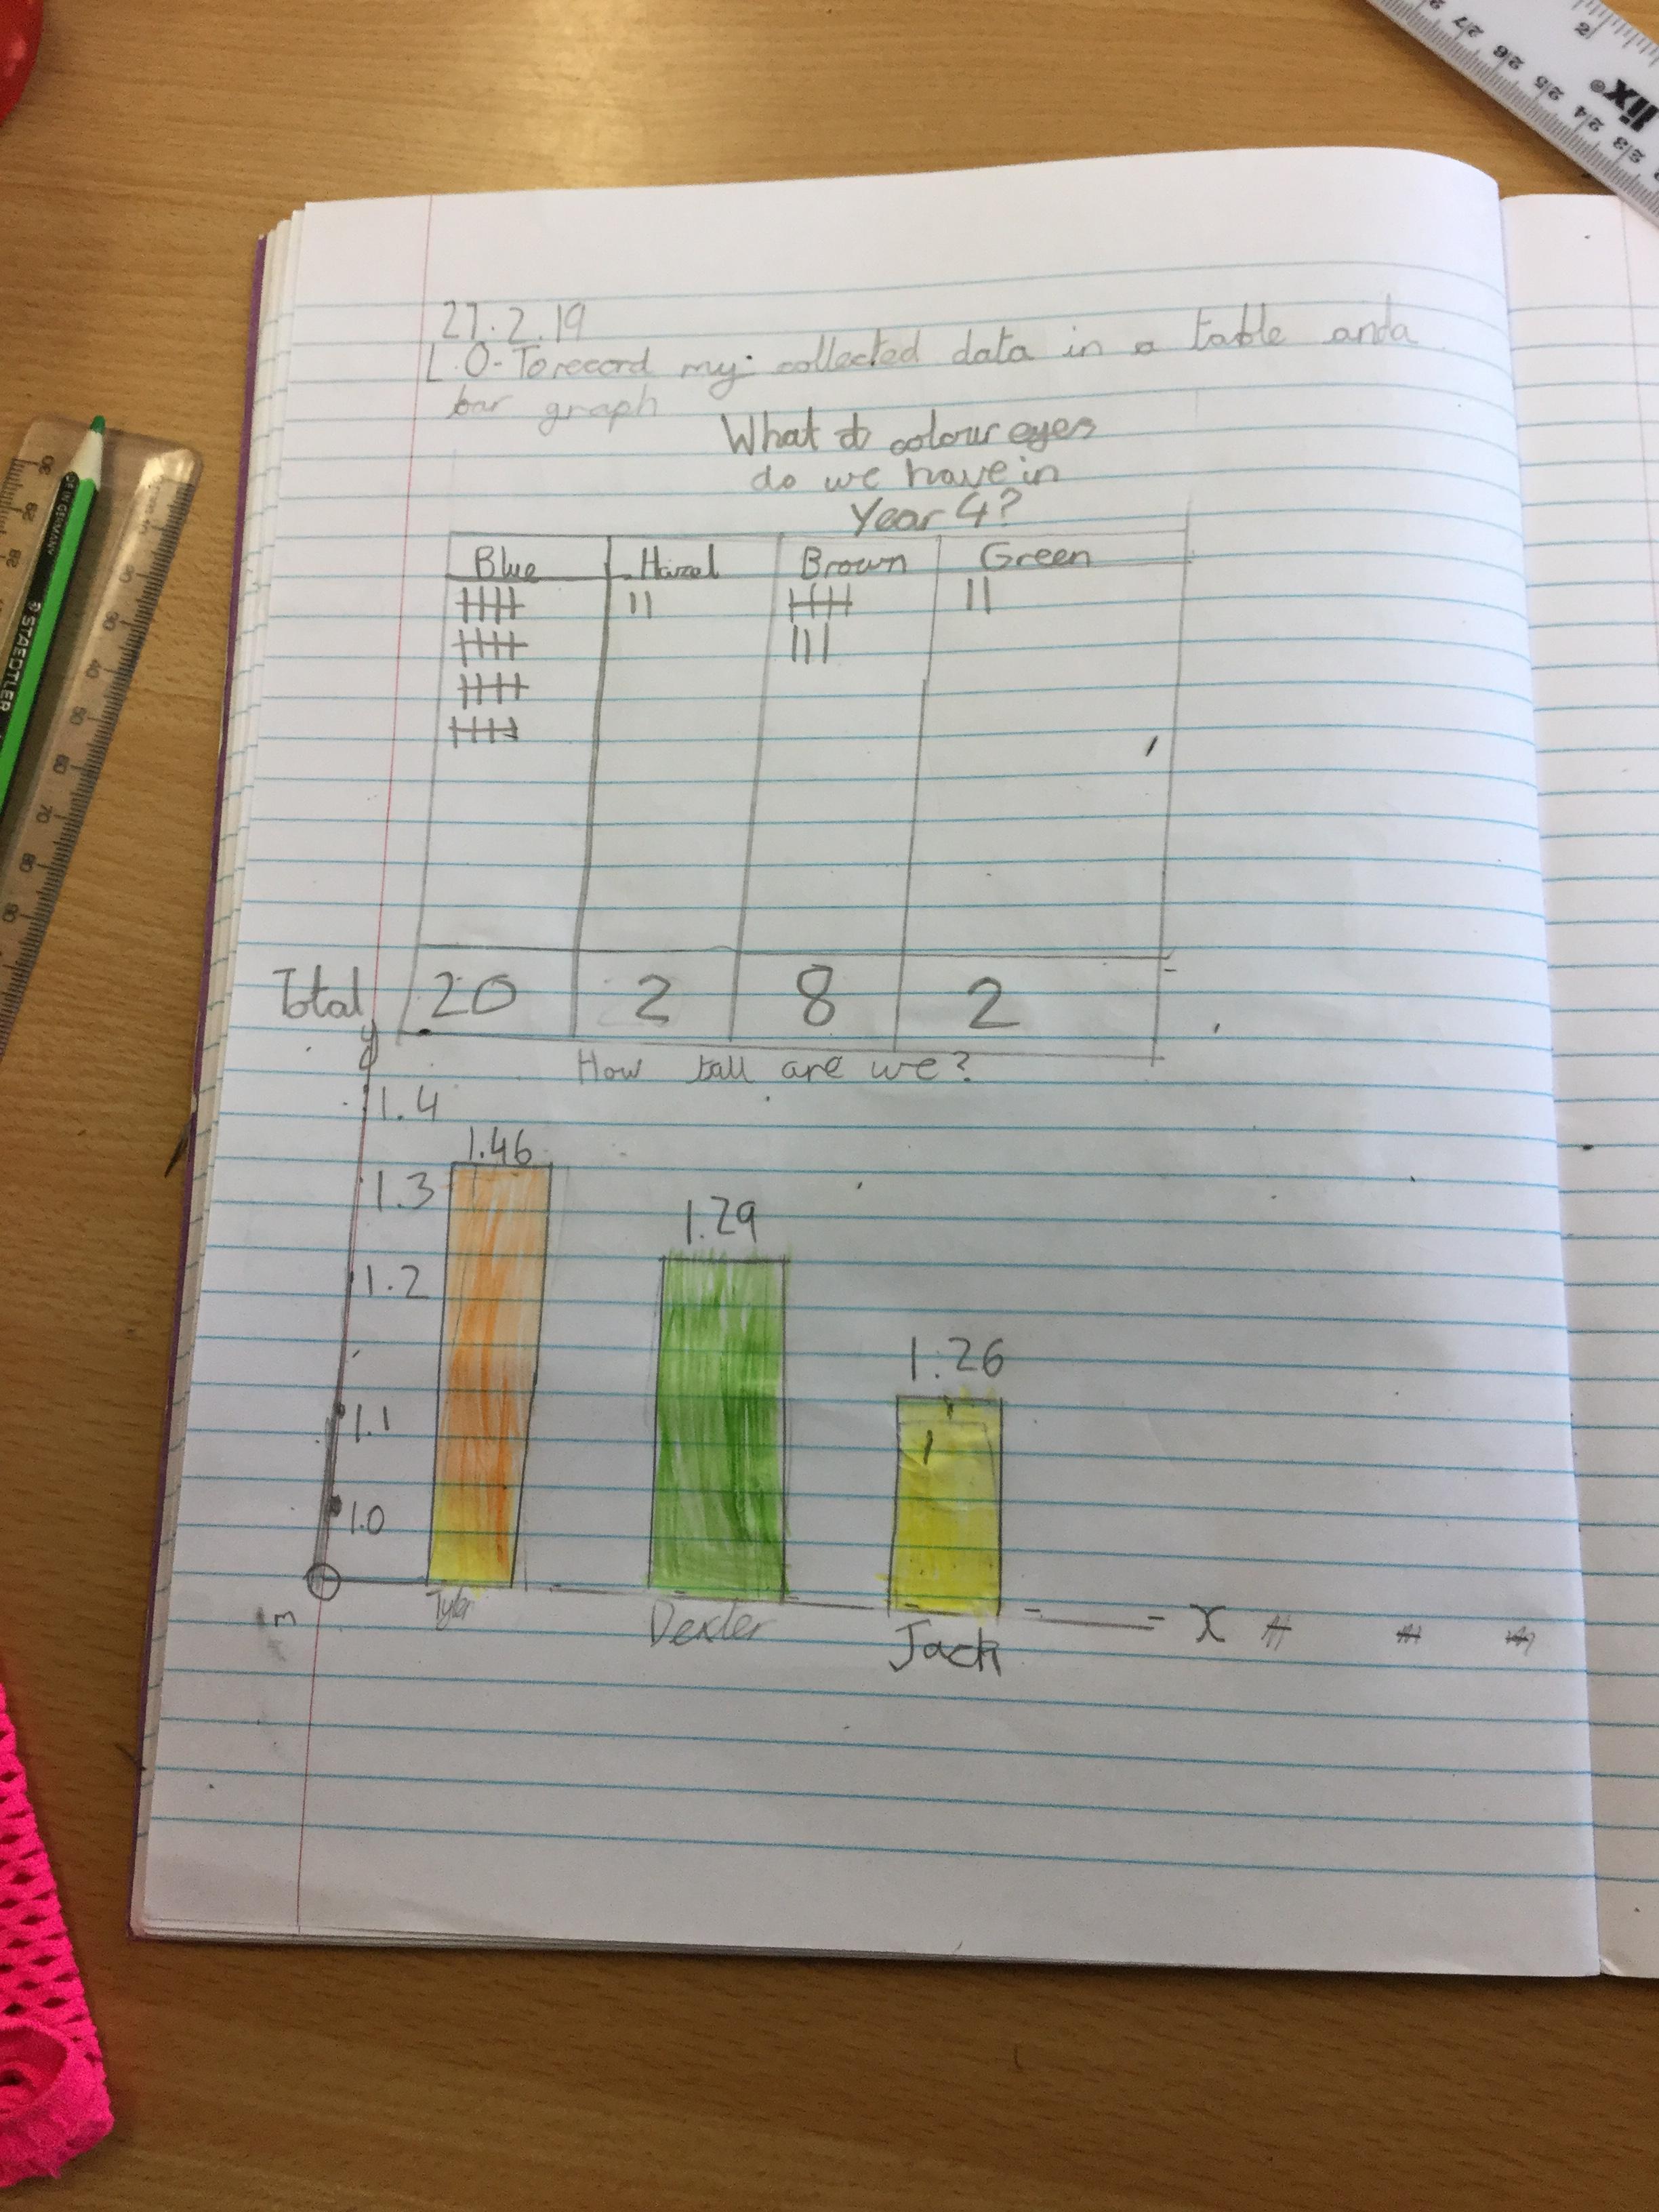 27.2.19
L.O-To record my collected data in a table and a
bar graph
What colour eyes
do we have in
Year 4?
Blue Hazel Brown Green
Total 20 2 8 2
How tall are we?
y
1.4
1.46
1.3
1.29
1.2
1.26
1.1
1.0
1m
Tyler Dexter Jack x
STAEDTLER
IN GERMANY
30
29
28
30
40
50
60
70
80
90
27
26
25
24
23
2
lix®